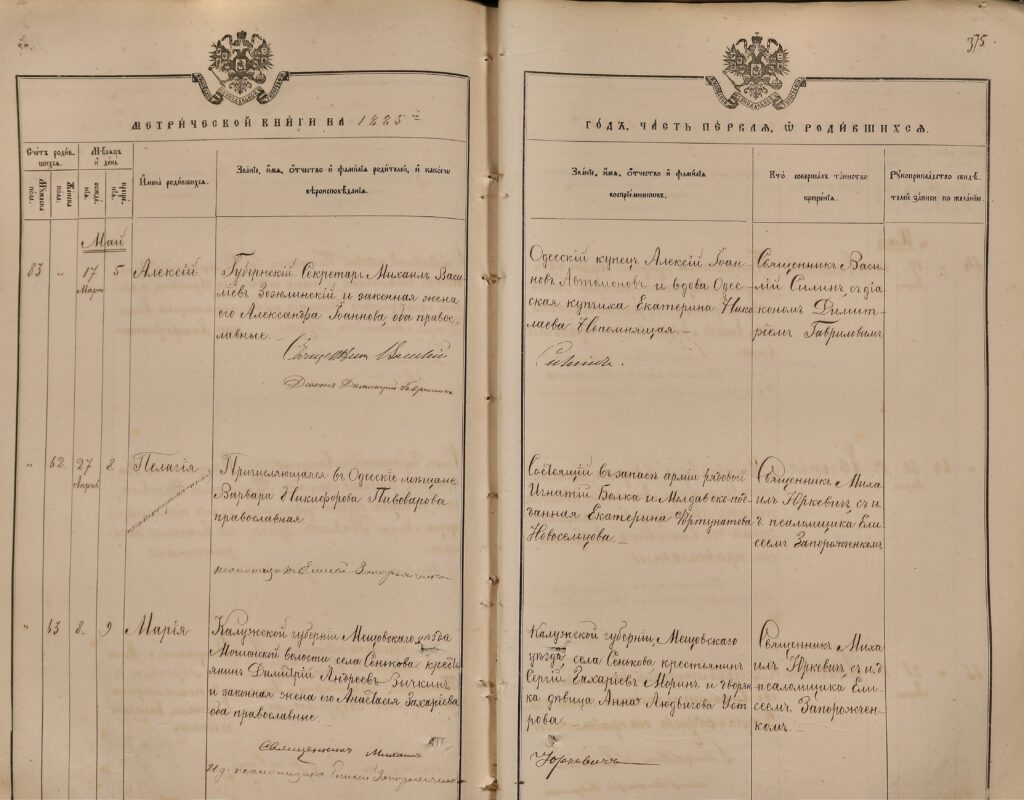 375.
МЕТРИЧЕСКОЙ КНИГИ НА 1885 й
ГОДЪ, ЧАСТЬ ПЕРВАЯ, Ѡ РОДИВШИХСЯ.
Счетъ родив-
шихся.
Мѣсяцъ
и день
Мужеска
пола.
Женска
пола.
рожде-
нія.
креще-
нія.
Имена родившихся.
Званіе, имя, отчество и фамилія родителей, и какого
вѣроисповѣданія.
Званіе, имя, отчество и фамилія
воспріемниковъ.
Кто совершалъ таинство
крещенія.
Рукоприкладство свидѣ-
телей записи по желанію.
Май
83 „ 17 5 Алексій
Март
Губернскій Секретарь Михаилъ Васи
льевъ Зозулинскій и законная жена
его Александра Іоаннова, оба право-
славные.
Священникъ Василій
Діаконъ Димитрій Гавриловъ
Одесскій купецъ Алексій Іоан-
новъ Автомоновъ и вдова Одес-
ская купчиха Екатерина Нико
лаева Непомнящая.
Силинъ.
Священникъ Васи-
лій Силинъ, съ діа
кономъ Димит-
ріемъ Гавриловымъ
„ 62. 27 8. Пелагія
Апрѣл
Причисляющаяся въ Одесскіе мѣщане
Варвара Никифорова Пивоварова
православная
псаломщикъ Елисей Запорожченко
Состоящій въ запасѣ арміи рядовой
Игнатій Болка и Молдавскопод-
данная Екатерина Фортунатова
Новосельцова.
Священникъ Миха
илъ Юркевичъ, съ и.
д. псаломщика Ели
сеемъ Запорожченкомъ
„ 63 8. 9 Марія
Калужской губерніи Мещовскаго уѣзда
Мошонской волости села Сенькова кресть
янинъ Димитрій Андреевъ Зычкинъ
и законная жена его Анастасія Захаріева
оба православные.
Священникъ Михаилъ
И. д. псаломщика Елисей Запорожченко
Калужской губерніи, Мещовскаго
уѣзда, села Сенькова крестьянинъ
Сергій Захаріевъ Моринъ и дворян
ка дѣвица Анна Людвигова Уст
рова.
Юркевичъ
Священникъ Миха
илъ Юркевичъ, съ и. д.
псаломщика Ели-
сеемъ Запорожчен-
комъ